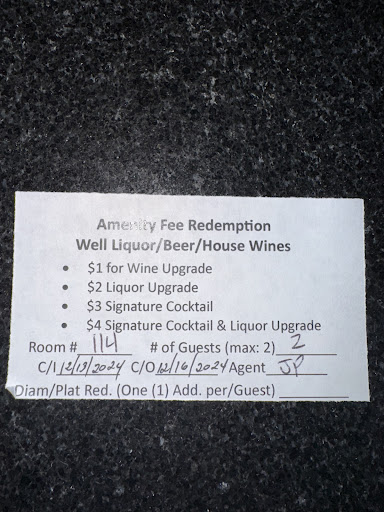 Amenity Fee Redemption
Well Liquor/Beer/House Wines
• $1 for Wine Upgrade
• $2 Liquor Upgrade
• $3 Signature Cocktail
• $4 Signature Cocktail & Liquor Upgrade
Room # 114 # of Guests (max: 2) 2
C/I 12/13/2024 C/O 12/16/2024 Agent JP
Diam/Plat Red. (One (1) Add. per/Guest)